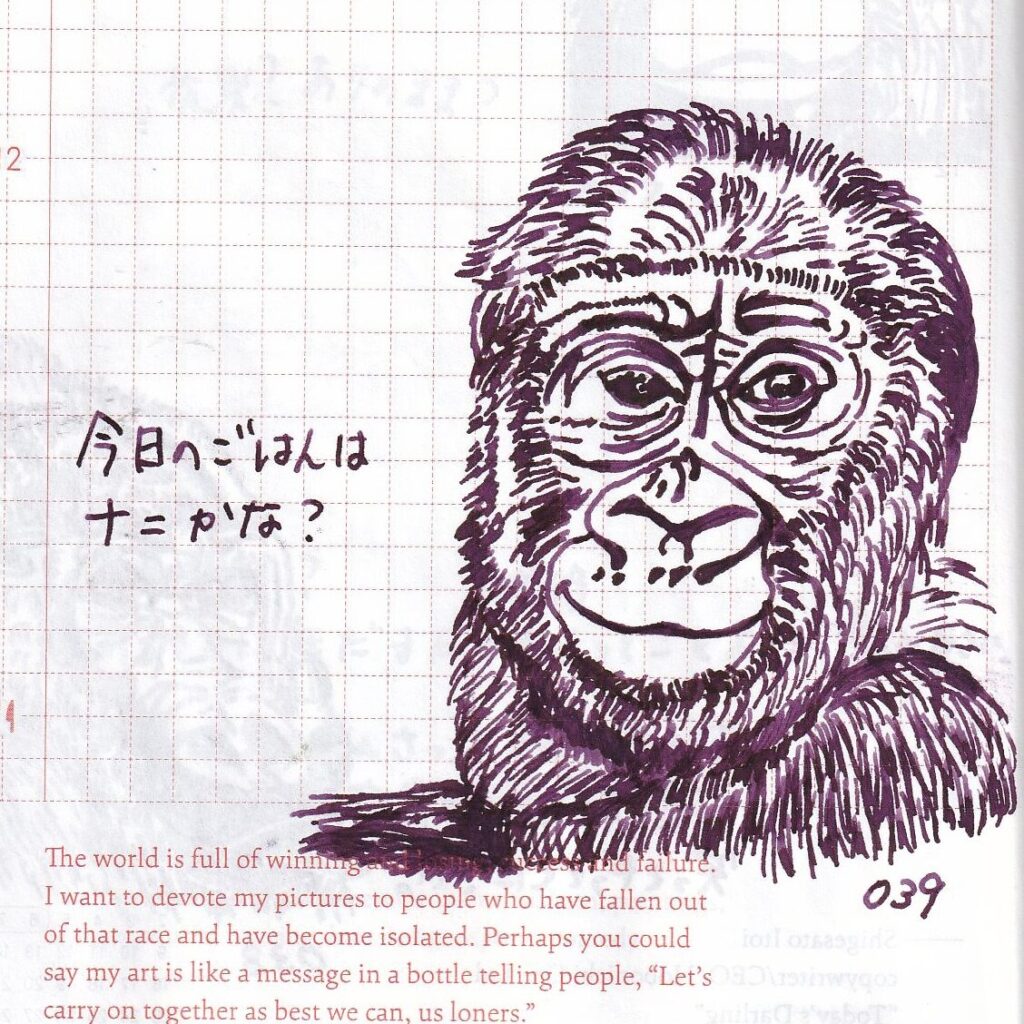 12
今日のごはんは
ナニかな?
The world is full of winning and losing, success and failure.
I want to devote my pictures to people who have fallen out
of that race and have become isolated. Perhaps you could
say my art is like a message in a bottle telling people, “Let’s
carry on together as best we can, us loners.”
039